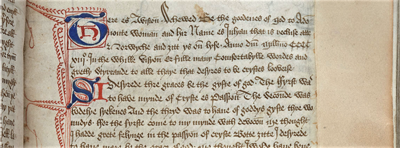 Here es a visioun schewed be the goodenes of god to a de
uoute woman and hir name es Julyan that is recluse atte
Norwyche and ȝitt ys on lyfe Anno dni millmo CCCC
xiij In the whilke visioun er fulle many comfortabylle wordes and
gretly styrrande to alle thaye that desyres to be crystes looverse
I desyrede thre graces be the gyfte of god The fyrst was
to have mynde of cryste es passioun The secounde was
bodelye syekenes And the thryd was to haue of goddys gyfte thre wo
undys For the fyrste come to my mynde with devocoun me thought
I hadde grete felynge in the passyoun of cryste botte ȝitte I desyrede
to haue more be the grace of god me thought I wolde haue bene